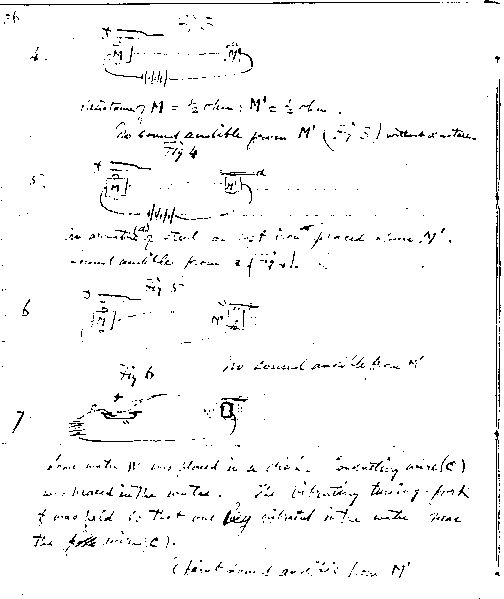 Fig 3
4.
M M'
Resistance of M = ½ ohm : M' = ½ ohm.
No sound audible from M' (Fig 3) without armature
Fig 4
5.
M M'
An armature (a) of steel or soft iron placed above M'.
Sound audible from a (Fig 4).
Fig 5
6
M M'
Fig 6 No sound audible from M'
7
Some water W was placed in a dish. Conducting wire (C)
was placed in the water. The vibrating tuning-fork
f was held so that one leg vibrated in the water near
the wire (C).
(faint sound audible from M'